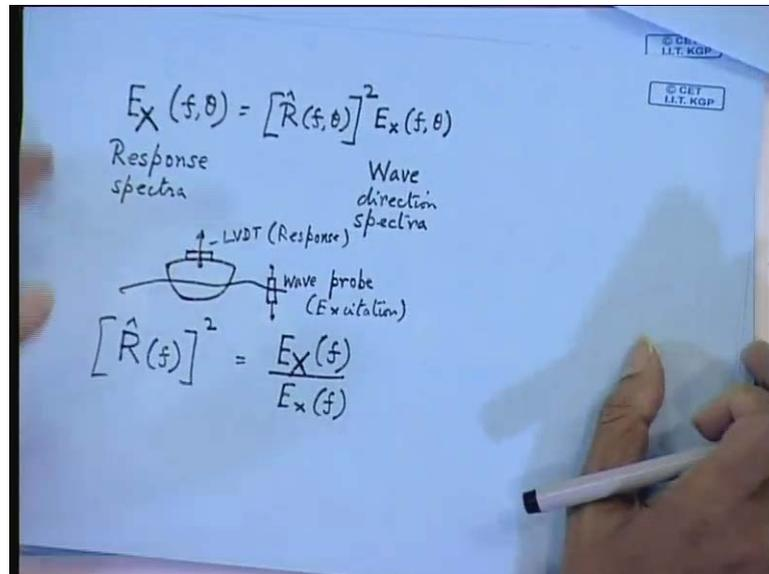 © CET
I.I.T. KGP
© CET
I.I.T. KGP
E_X (f,θ) = [R̂(f,θ)]² E_x (f,θ)
Response
spectra
Wave
direction
spectra
LVDT (Response)
wave probe
(Excitation)
[R̂(f)]² = E_X(f) / E_x(f)